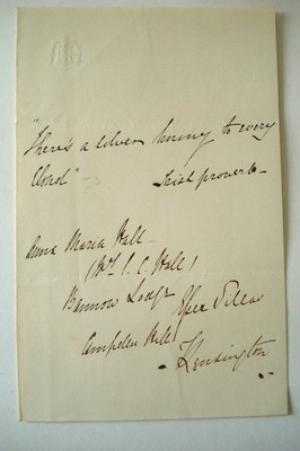 "There's a silver lining to every
Cloud" Irish proverb—
Anna Maria Hall—
(Mrs S. C. Hall)
Bannow Lodge
Campden Hill
Kensington